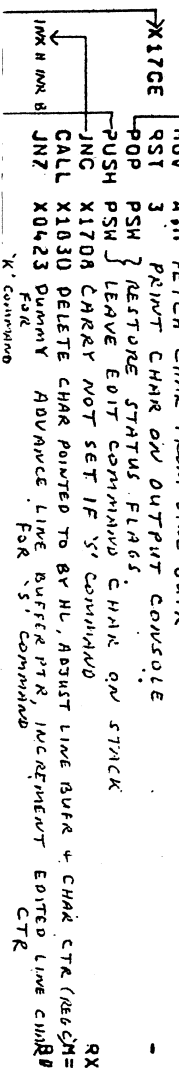 FETCH CHAR FROM LINE BUFR
X17CE RST 3 PRINT CHAR ON OUTPUT CONSOLE
POP PSW } RESTORE STATUS FLAGS.
PUSH PSW } LEAVE EDIT COMMAND CHAR ON STACK
JNC X17DB CARRY NOT SET IF 'S' COMMAND
INX H INR B CALL X1830 DELETE CHAR POINTED TO BY HL, ADJUST LINE BUFR + CHAR CTR (REG C) RX
JNZ X0423 DUMMY ADVANCE LINE BUFFER PTR, INCREMENT EDITED LINE CHAR
FOR FOR 'S' COMMAND CTR
'K' COMMAND